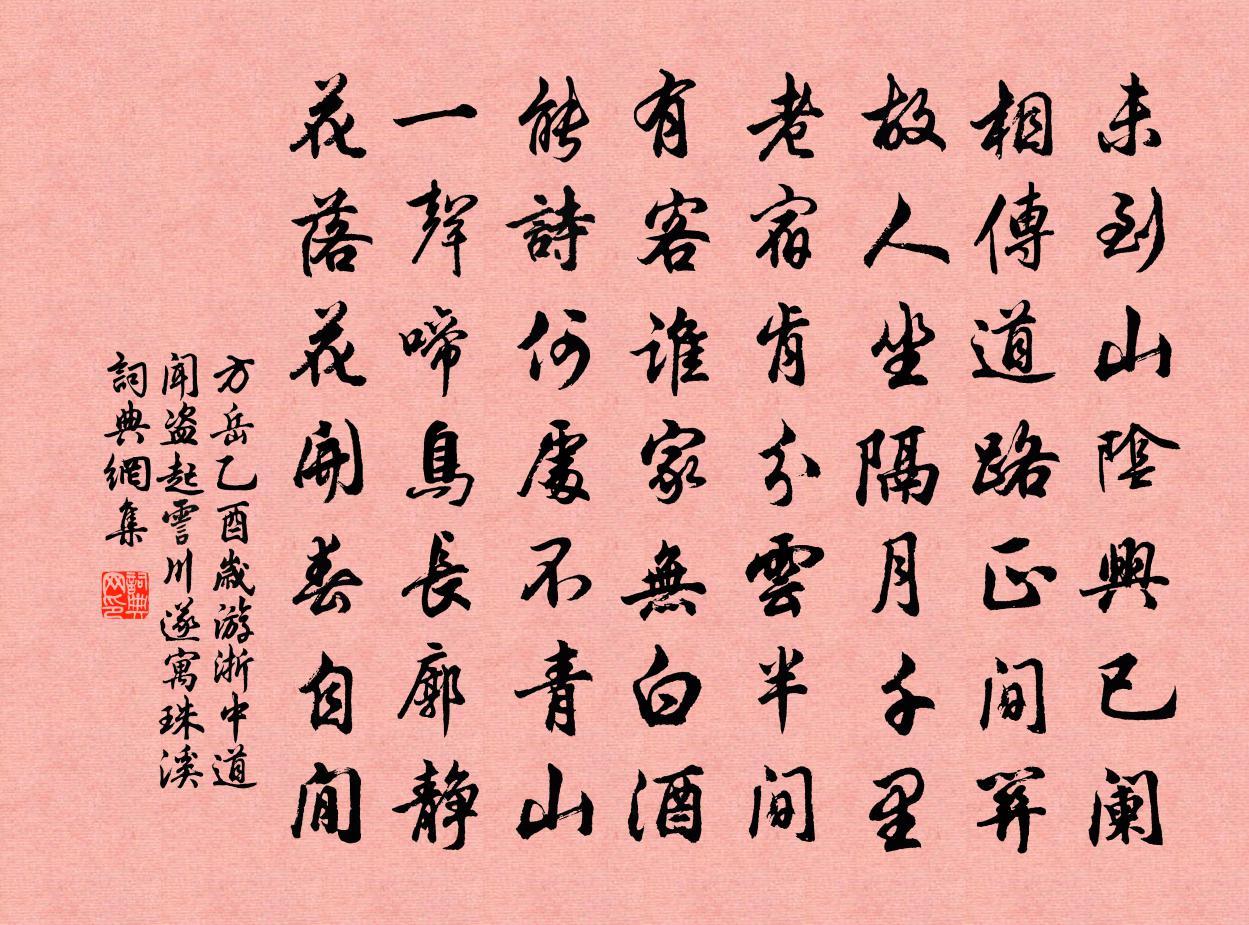 未到山陰興已闌
相傳道路正間關
故人坐隔月千里
老宿肯分雲半間
有客誰家無白酒
能詩何處不青山
一聲啼鳥長廓靜
花落花開春自閒
方岳乙酉歲游浙中道
聞盗起霅川遂寓珠溪
詞典網集
詞典网印